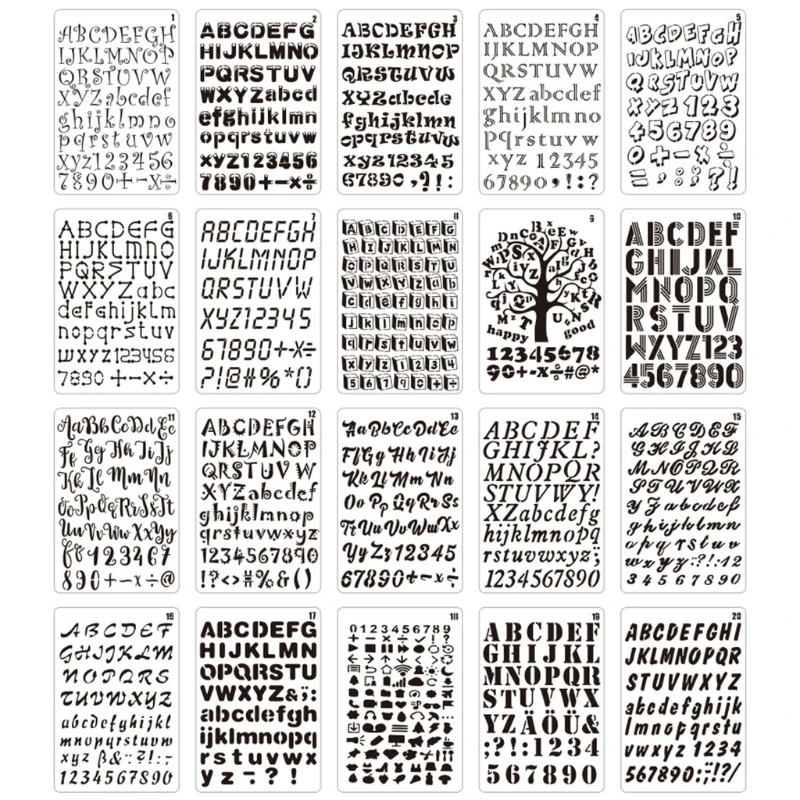 1
ABCDEFGH
IJKLMNOP
QRSTUVW
XYZabcdef
ghijklmno
pqrstuvw
xyz123456
7890+-×÷
2
ABCDEFG
HIJKLMNO
PQRSTUV
WXYZabcd
efghijklmn
opqrstuvw
xyz123456
7890+-×÷
3
ABCDEFGH
IJKLMNOP
QRSTUVW
XYZabcde
fghijklmn
opqrstuvw
xyz12345
67890,?!:
4
ABCDEFGH
IJKLMNOP
QRSTUVW
XYZabcdef
ghijklmno
pqrstuvw
xyz 12345
67890,!:?
5
ABCDEFGH
IJKLMNOP
QRSTUVW
XYZ123
456789
0+-×÷
6
ABCDEFG
HIJKLMNO
PQRSTUV
WXYZabc
defghijklm
nopqrstuv
wxyz123456
7890+-×÷
7
ABCDEFGH
IJKLMNOP
QRSTUVW
XYZ12345
67890+-×÷
?!@#%*()
8
ABCDEFG
HIJKLMN
OPQRSTU
9
happy
good
12345678
90+-×÷#@*
10
ABCDEF
GHIJKL
MNOPQ
RSTUV
WXYZ123
4567890
11
AaBbCcDdEe
Ff Gg Hh Ii Jj
Kk Ll Mm Nn
OoPpQqRrSsTt
UuVvWwXxYy
1234567
890+-×÷@
12
ABCDEFGH
IJKLMNOP
QRSTUVW
XYZabcdef
ghijklmnop
qrstuvwxyz
1234567890
!?<>#%&()
13
AaBbCcDdEe
FfGgHhIiJj
KkLlMmNn
OoPpQqRrSs
TtUuVvWwXx
YyZz12345
67890+-×÷
14
ABCDEF
GHIJKL?
MNOPQR
STUVWY!
XZabcdefg
hijklmnopq
rstuvwxyz;
1234567890
15
ABCDEF
GHIJKL
MNOPQR
STUVWX
YZabcdef
ghijklmn
opqrstuv
wxyz
1234567890
16
ABCDEF
GHIJKLM
NOPQRS
TUVWXYZ
abcdefghijkl
mnopqrstuvw
xyzß
1234567890
17
ABCDEFG
HIJKLMN
OPQRSTU
VWXYZ&;:
abcdefgh
ijklmnopq
rstuvwx
yz-?!
18
0123456789
19
ABCDEF
GHIJKL
MNOPQR
STUVWX
YZÄÖÜ&
;?!:1234
567890
20
ABCDEFGHI
JKLMNOPQR
STUVWXYZ
abcdefghijk
lmnopqrstu
vwxyz 1234
567890:;!?/